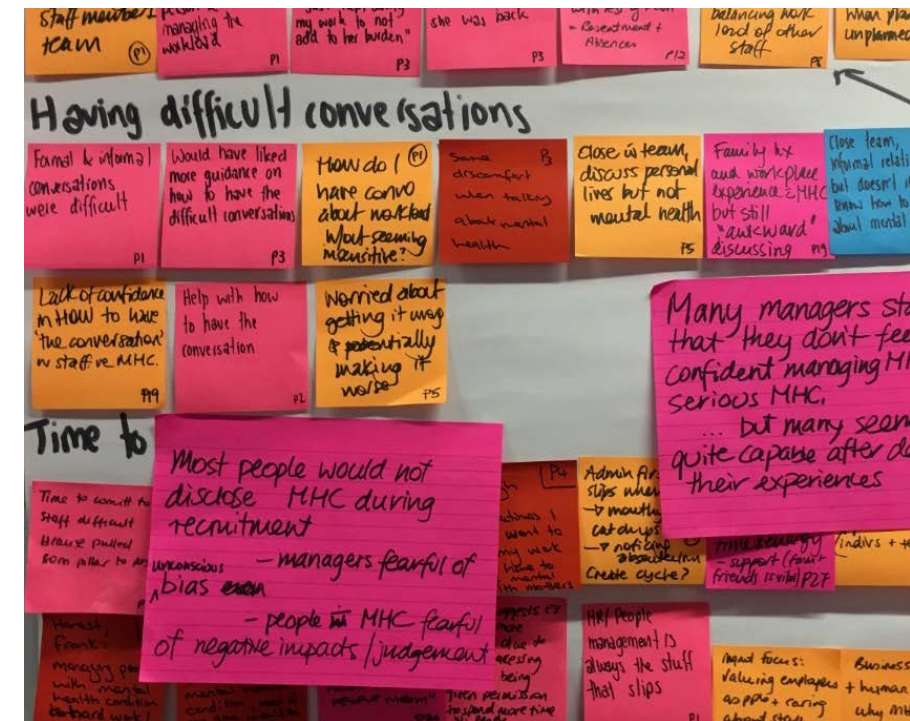 Staff members
team
P1
managing the
workload
P1
my work to not
add to her burden"
P3
she was back
P3
- Resentment +
Absences
P12
balancing work
load of other
staff
P8
When plan
unplanned
Having difficult conversations
Formal & informal
conversations
were difficult
P1
Would have liked
more guidance on
how to have the
difficult conversations
P3
How do I
P1
have convo
about workload
w/out seeming
insensitive?
Some
P3
discomfort
when talking
about mental
health
Close in team,
discuss personal
lives but not
mental health
P5
Family hx
and workplace
experience MHC
but still
"awkward"
discussing
P19
Close team,
informal relati
but doesn't
know how to
about mental
Lack of confidence
in HOW to have
'the conversation'
w staff re MHC.
P19
Help with how
to have the
conversation
P2
Worried about
getting it wrong
& potentially
making it
worse
P5
Many managers sta
that they don't fee
confident managing MH
serious MHC.
... but many seem
quite capable after de
their experiences
Time to
Most people would not
disclose MHC during
recruitment
- managers fearful of
unconscious
bias
- people MHC fearful
of negative impacts / judgement
Time to commit to
staff difficult
pulled
pillar to
P4
want to
my work
have to
mental
Admin fir
slips when
catchups
create cycle?
time & energy
- support
friends
P27
/indivs +
Honest,
frank,
managing
with mental
health condition
HR/People
management is
always the stuff
that slips
P1
given permission
to spend more time
focus:
Valuing employees
as ppl + caring
Business
+ human
why MH